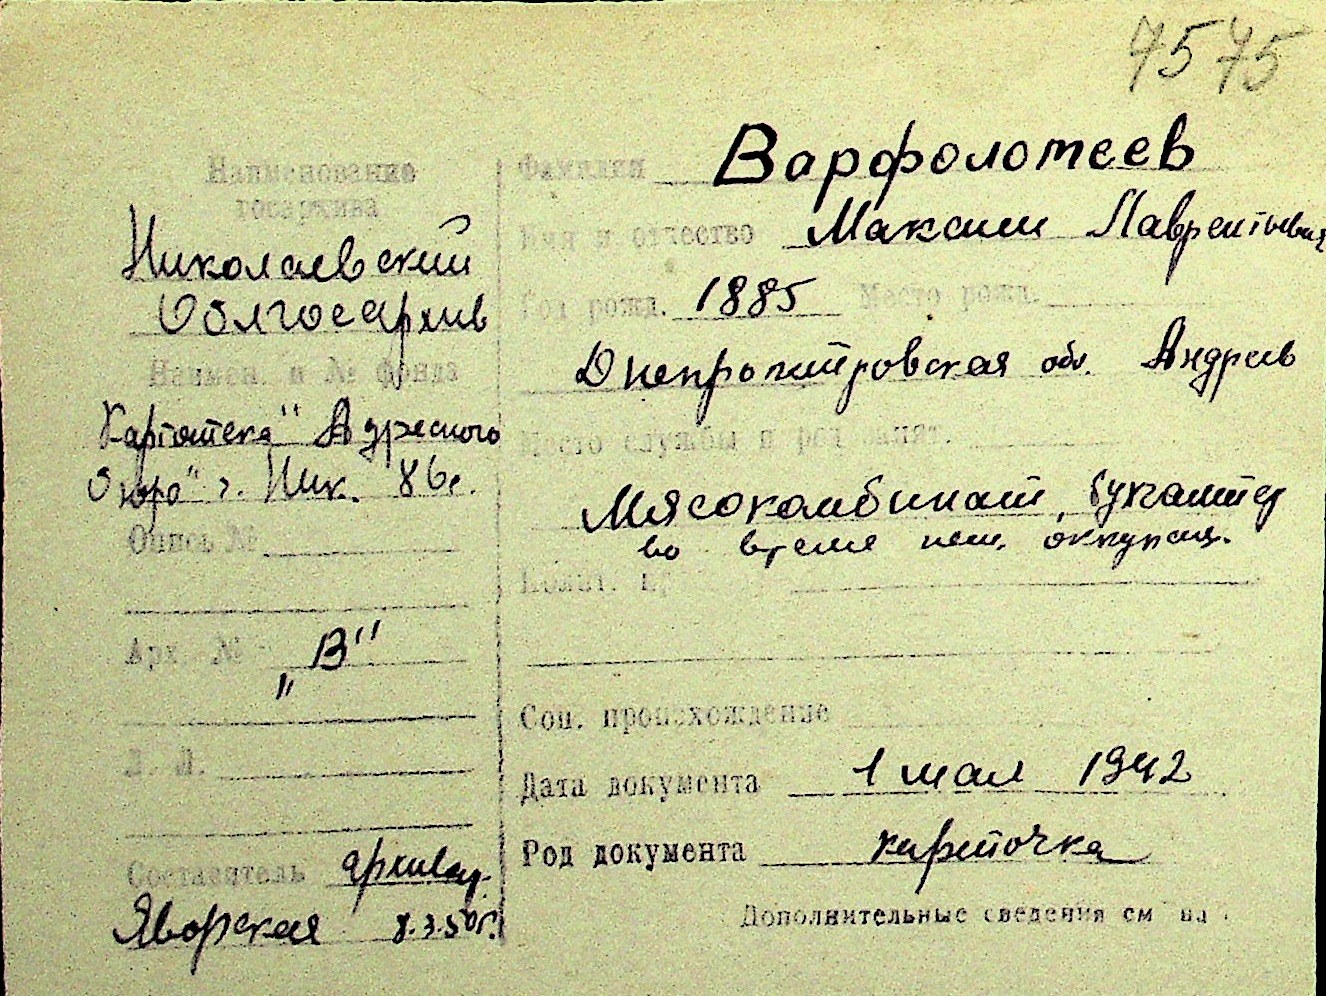 7575
Наименование
госархива
Николаевский
Облгосархив
Наимен. и № фонда
Картотека "Адресного
бюро" г. Ник. 86с.
Опись №
Арх. № "В"
Л. Л.
Составитель архивар.
Яворская 8.3.50г.
Фамилия Варфоломеев
Имя и отчество Максим Лаврентьевич
Год рожд. 1885 Место рожд.
Днепропетровская обл. Андреев
Место службы и род занят.
Мясокомбинат, бухгалтер
во время нем. оккупац.
Полит.
Соц. происхождение
Дата документа 1 мая 1942
Род документа карточка
Дополнительные сведения см на